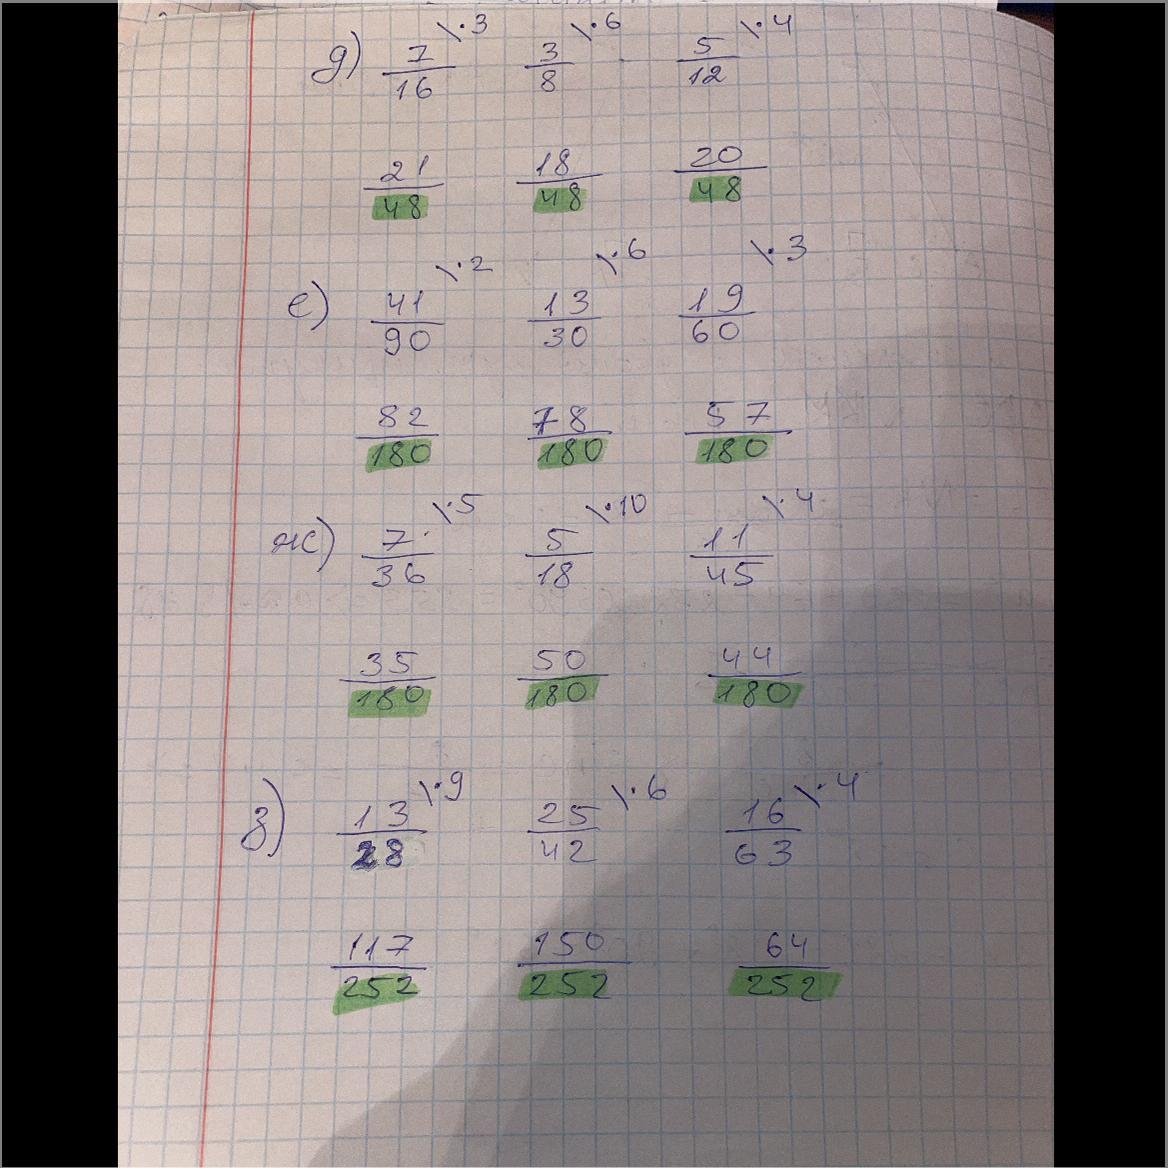 д) 7/16 \·3 3/8 \·6 5/12 \·4
21/48 18/48 20/48
е) 41/90 \·2 13/30 \·6 19/60 \·3
82/180 78/180 57/180
ж) 7/36 \·5 5/18 \·10 11/45 \·4
35/180 50/180 44/180
з) 13/28 \·9 25/42 \·6 16/63 \·4
117/252 150/252 64/252